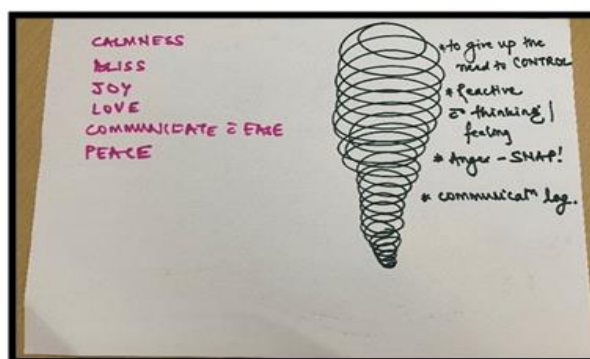 CALMNESS
BLISS
JOY
LOVE
COMMUNICATE c̄ EASE
PEACE
* to give up the
need to CONTROL
* Reactive
c̄ thinking /
feeling
* Anger - SNAP!
* communicatⁿ log.